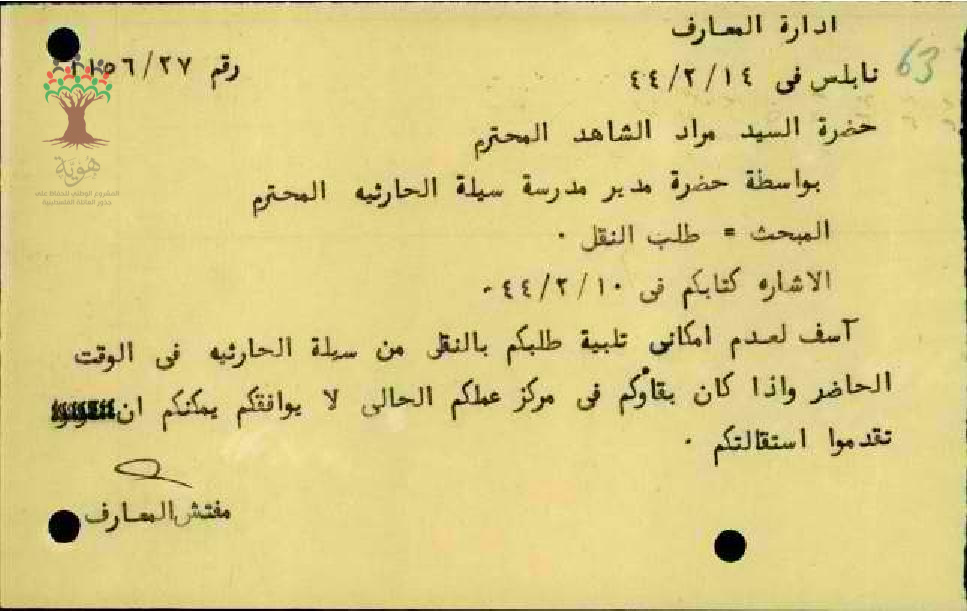 ادارة المعارف
63
نابلس فى ٤٤/٢/١٤
رقم ١١٥٦/٢٧
حضرة السيد مراد الشاهد المحترم
بواسطة حضرة مدير مدرسة سيلة الحارثيه المحترم
المبحث = طلب النقل ٠
الاشاره كتابكم فى ٤٤/٢/١٠ ٠
آسف لعدم امكانى تلبية طلبكم بالنقل من سيلة الحارثيه فى الوقت
الحاضر واذا كان بقاؤكم فى مركز عملكم الحالى لا يوافقكم يمكنكم ان
تقدموا استقالتكم ٠
مفتش المعارف
هوية
المشروع الوطني للحفاظ على
جذور العائلة الفلسطينية